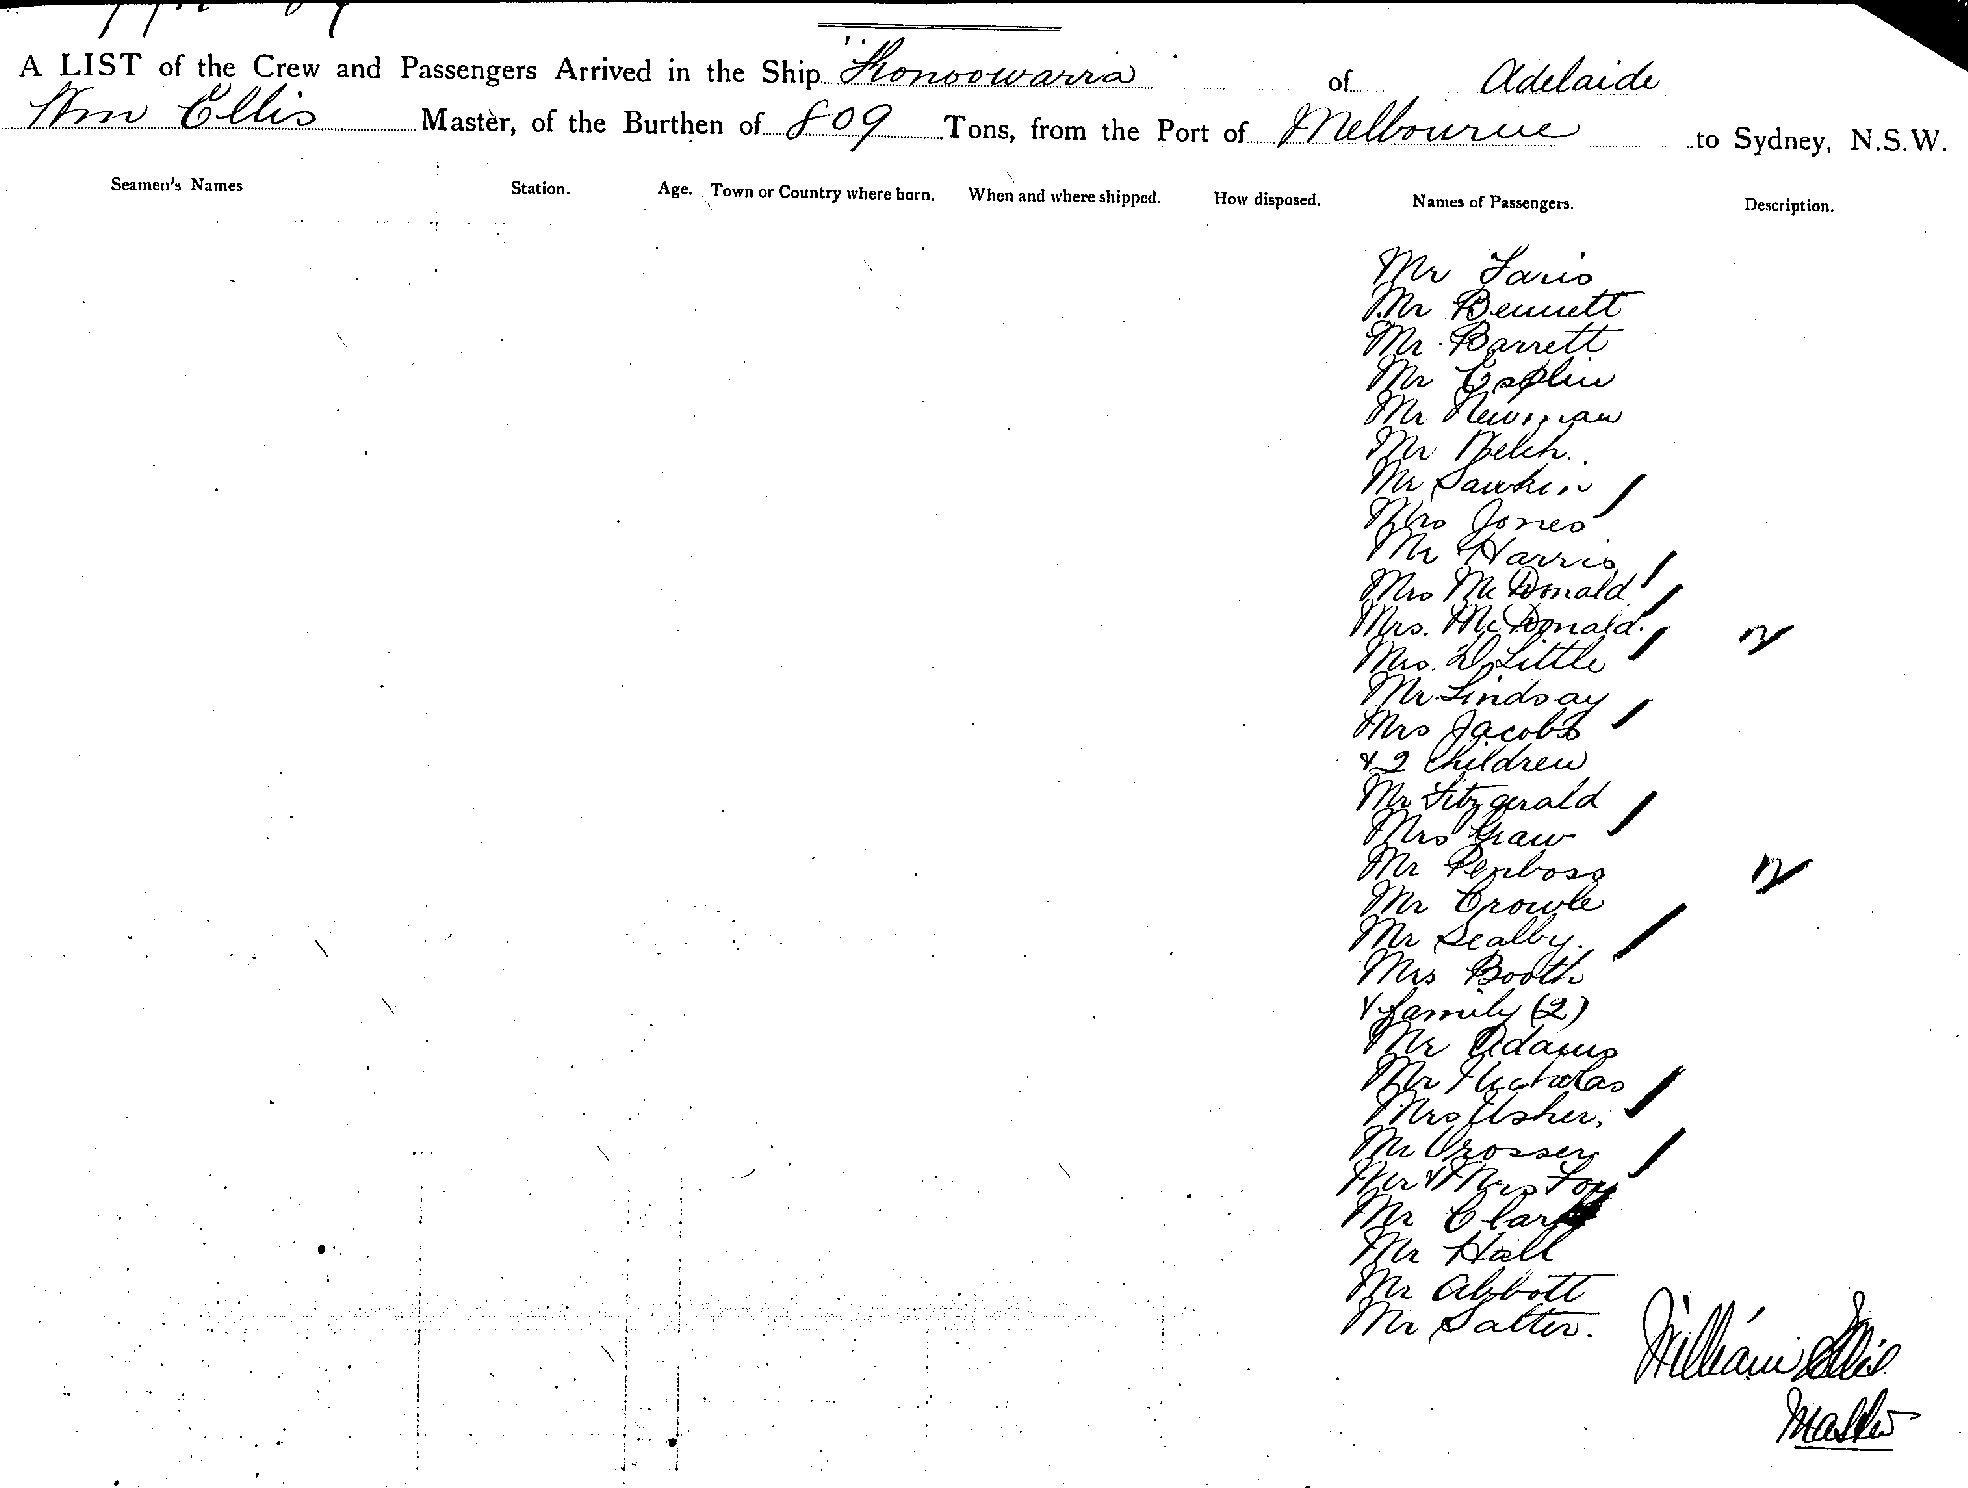 A LIST of the Crew and Passengers Arrived in the Ship "Konoowarra of Adelaide
Wm Ellis Master, of the Burthen of 809 Tons, from the Port of Melbourne to Sydney, N.S.W.
Seamen's Names Station. Age. Town or Country where born. When and where shipped. How disposed. Names of Passengers. Description.
Mr Faris
Mr Bennett
Mr Barrett
Mr Esplin
Mr Newman
Mr Welch.
Mr
Mrs Jones
Mr Harris
Mrs McDonald
Mrs. McDonald.
Mrs. D. Little
Mr Lindsay
Mrs Jacobs
& 2 children
Mr Fitzgerald
Mrs Graw
Mr
Mr Crowle
Mr Sealby.
Mrs Booth
& family (2)
Mr Adams
Mr Nicholas
Mrs Usher.
Mr Crosser
Mr & Mrs Foy
Mr Clark
Mr Hall
Mr Abbott
Mr Salter.
William Ellis
Master